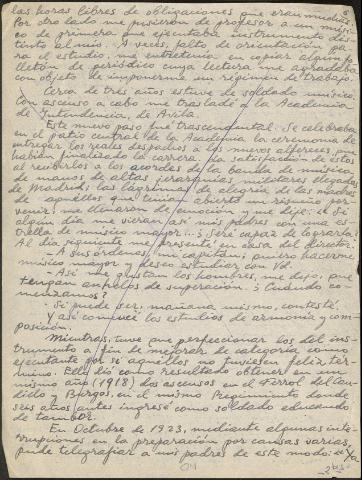 las horas libres de obligaciones que eran muchas.
Por otro lado me pusieron de profesor a un músi-
co de primera que ejecutaba instrumento dis-
tinto al mío. A veces, falto de orientación pa-
ra el estudio, me entretenía en copiar algún fo-
lletón de periódico cuya lectura me agradaba
con objeto de imponerme un régimen de trabajo.
Cerca de tres años estuve de soldado músico.
Con ascenso a cabo me trasladé a la Academia
de Intendencia, de Avila.
Este nuevo paso fue trascendental. Se celebraba
en el patio central de la Academia la ceremonia de
entregar los reales despachos a los nuevos alféreces que
habían finalizado la carrera. La satisfacción de éstos
al recibirlos a los acordes de la banda de música,
de manos de altas jerarquías militares llegadas
de Madrid; las lágrimas de alegría de las madres
de aquéllos que tenían abierto un risueño por-
venir, me llenaron de emoción y me dije: ¡Si
algún día me vieran así mis padres con una es-
trella de músico mayor...! ¿Seré capaz de lograrla?
Al día siguiente me presenté en casa del director:
- A sus órdenes, mi capitán; quiero hacerme
músico mayor y deseo estudiar con Vd.
- Así me gustan los hombres, me dijo, que
tengan anhelos de superación. ¿Cuándo co-
menzamos?
- Si puede ser, mañana mismo, contesté.
Y así comencé los estudios de armonía y com-
posición.
Mientras, tuve que perfeccionar los del ins-
trumento a fin de mejorar de categoría como
ejecutante por si aquéllos no tuviesen feliz tér-
mino. Ello dio como resultado obtener en un
mismo año (1918) dos ascensos en el Ferrol del Cau-
dillo y Burgos, en el mismo Regimiento donde
seis años antes ingresé como soldado educando
de tambor.
En Octubre de 1923, mediante algunas inte-
rrupciones en la preparación por causas varias,
pude telegrafiar a mis padres de este modo: "Ya